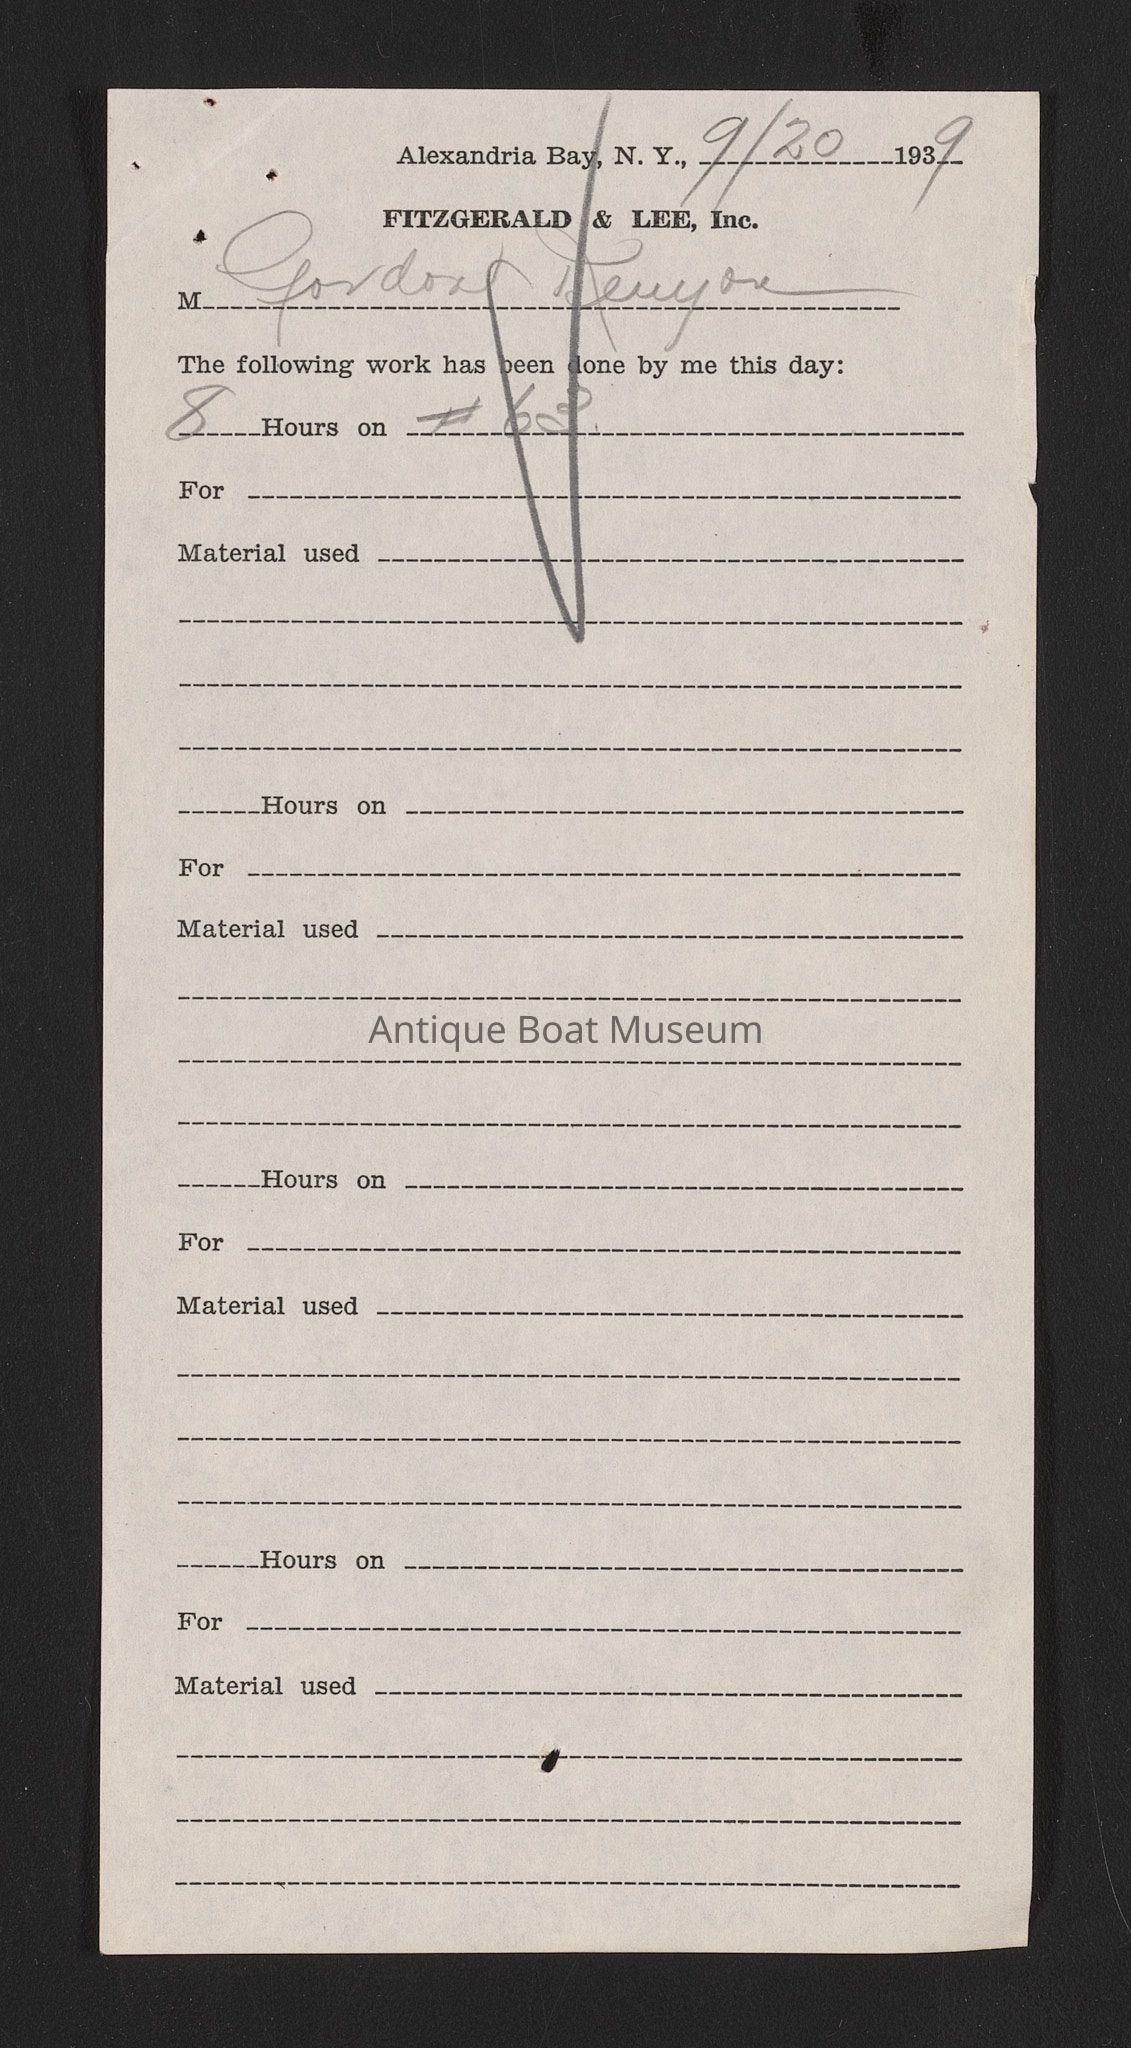 Alexandria Bay, N. Y., 9/20 1939
FITZGERALD & LEE, Inc.
M Gordon Kenyon
The following work has been done by me this day:
8 Hours on # 63
For
Material used
Hours on
For
Material used
Antique Boat Museum
Hours on
For
Material used
Hours on
For
Material used